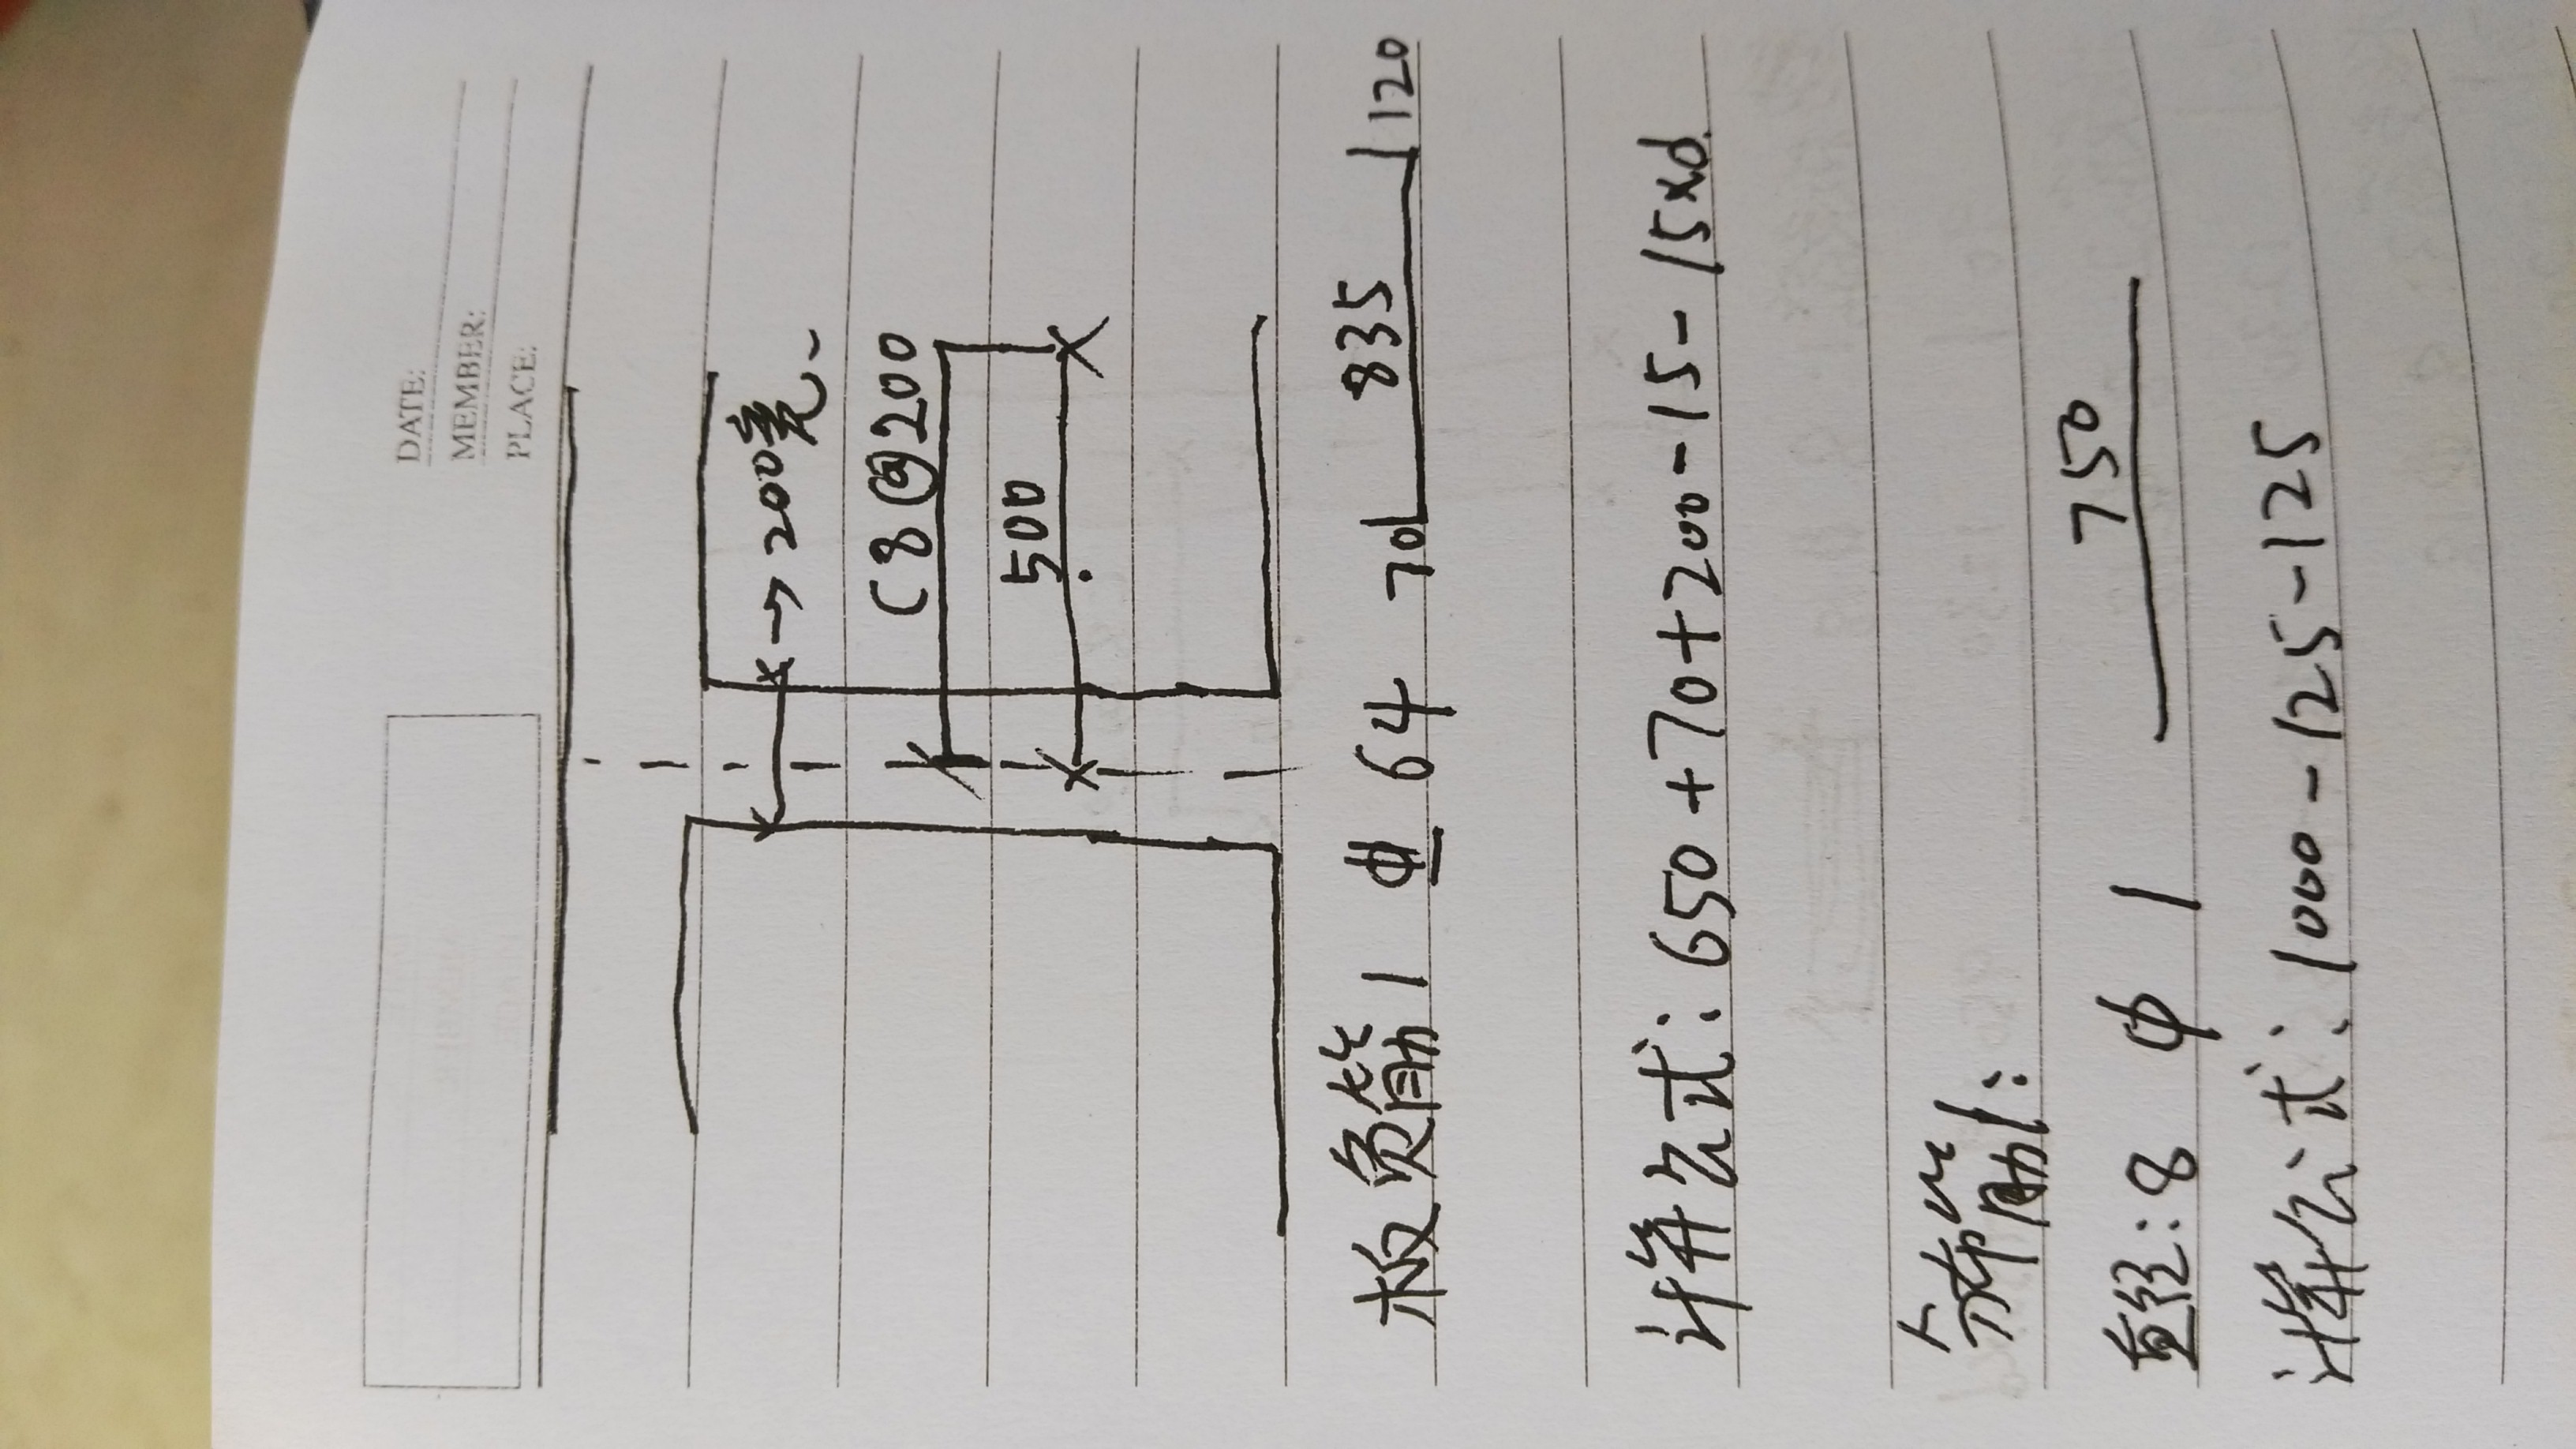 DATE:
MEMBER:
PLACE:
200宽
C8@200
500
板负筋1 ⏀ 64 70 835 120
计算公式: 650+70+200-15-15xd
分布筋:
直径: 8 Φ 1 750
计算公式: 1000-125-125